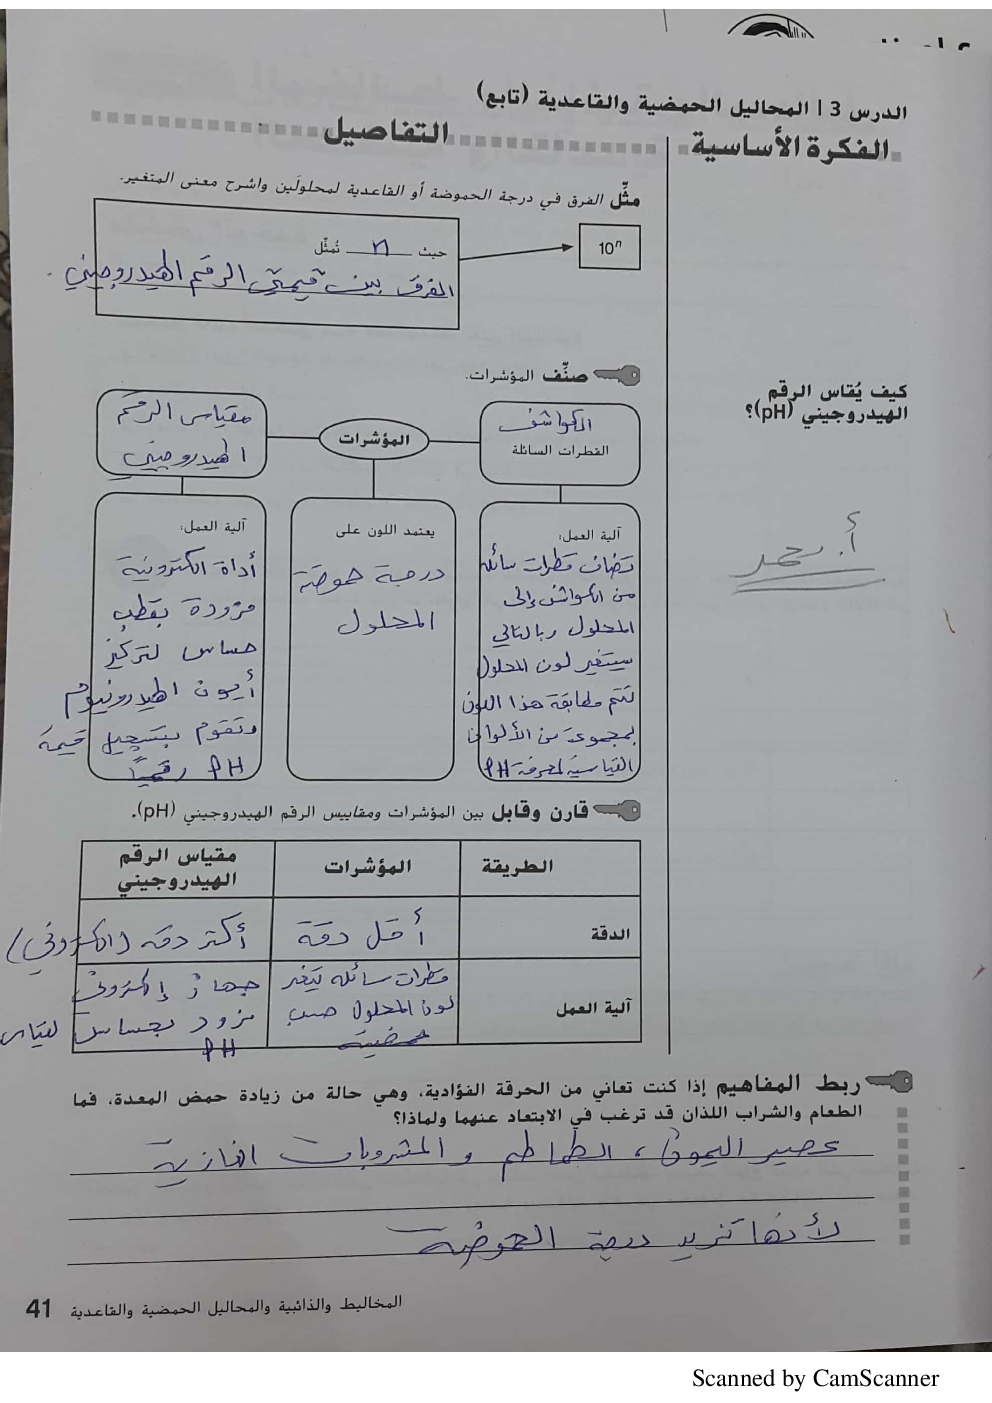 الدرس 3 | المحاليل الحمضية والقاعدية (تابع)
الفكرة الأساسية
التفاصيل
مثِّل الفرق في درجة الحموضة أو القاعدية لمحلولَين واشرح معنى المتغير.
10ⁿ
حيث n تُمثِّل
الفرق بين قيمتي الرقم الهيدروجيني .
كيف يُقاس الرقم
الهيدروجيني (pH)؟
أ. رحمد
صنِّف المؤشرات.
الكواشف
القطرات السائلة
المؤشرات
مقياس الرقم
الهيدروجيني
آلية العمل:
تضاف قطرات سائلة
من الكواشف إلى
المحلول وبالتالي
سيتغير لون المحلول
لتتم مطابقة هذا اللون
بمجموعة من الألوان
القياسية لمعرفة PH
يعتمد اللون على
درجة حموضة
المحلول
آلية العمل:
أداة الكترونية
مزودة بقطب
حساس لتركيز
أيون الهيدرونيوم
وتقوم بتسجيل قيمة
PH رقميًا
قارن وقابل بين المؤشرات ومقاييس الرقم الهيدروجيني (pH).
الطريقة
المؤشرات
مقياس الرقم
الهيدروجيني
الدقة
أقل دقة
أكثر دقة (الكتروني)
آلية العمل
قطرات سائلة يتغير
لون المحلول حسب
حمضيته
جهاز إلكتروني
مزود بحساس لقياس
PH
ربط المفاهيم إذا كنت تعاني من الحرقة الفؤادية، وهي حالة من زيادة حمض المعدة، فما
الطعام والشراب اللذان قد ترغب في الابتعاد عنهما ولماذا؟
عصير الليمون ، الطماطم والمشروبات الغازية
لأنها تزيد درجة الحموضة
المخاليط والذائبية والمحاليل الحمضية والقاعدية 41
Scanned by CamScanner